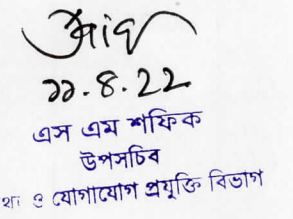 ২২.৪.২২
এস এম শফিক
উপসচিব
ও যোগাযোগ প্রযুক্তি বিভাগ